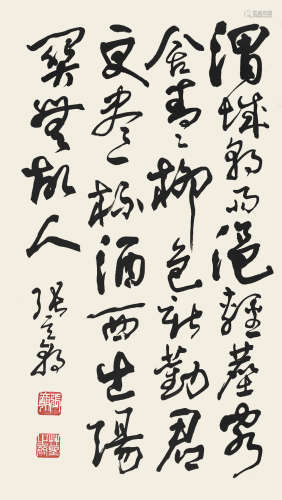 渭城朝雨浥輕塵客
舍青〻柳色新勸君
更盡一杯酒西出陽
關無故人
張